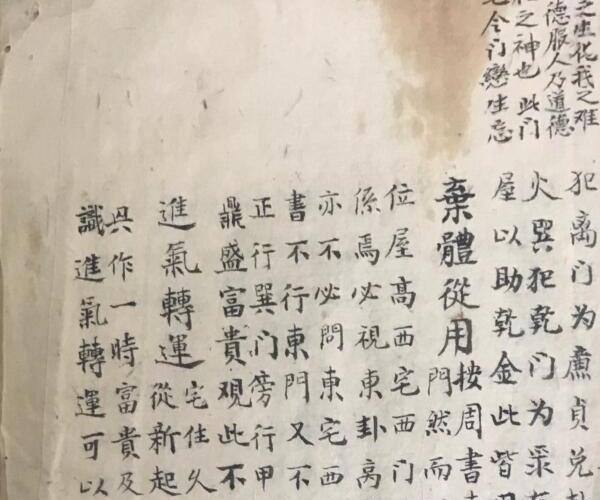 之生化我之难
德服人乃道德
之神也此门
今门戀生忘
犯离门为廉贞兑
火巽犯乾门为
屋以助乾金此皆
棄體從用按周書
門然而
位屋高西宅西门
係焉必視東卦离
亦不必問東宅西
書不行東門又不
正行巽门傍行甲
鼎盛富貴观此不
進氣轉運宅住久
從新起
具作一時富貴及
識進氣轉運可以